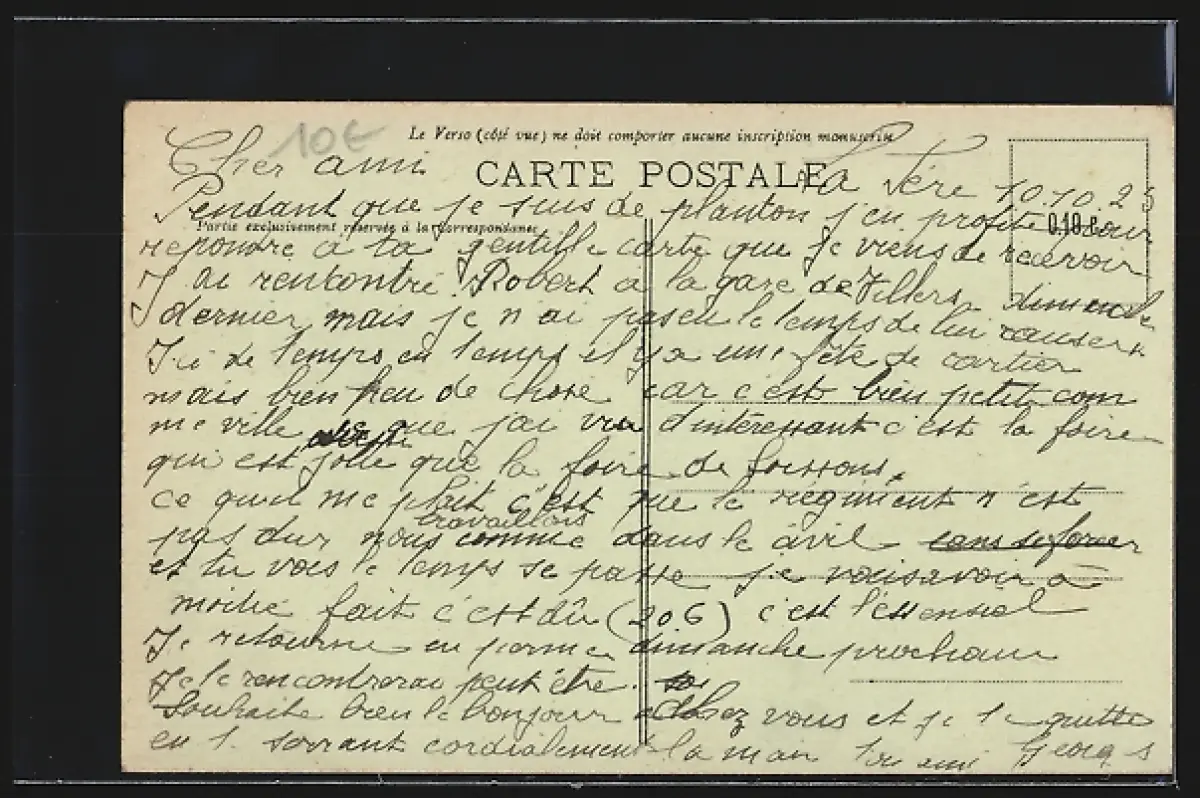 10€
Le Verso (côté vue) ne doit comporter aucune inscription manuscrite
Cher ami
CARTE POSTALE
La Fère 10.10.25
Pendant que je suis de planton j'en profite pour
Partie exclusivement réservée à la correspondance
0.10 c
repondre à ta gentille carte que je viens de recevoir
J ai rencontré Robert à la gare de Villers dimanche
dernier mais je n ai pas eu le temps de lui causer
Ici de temps en temps il y a une fête de cartier
mais bien peu de chose car c'est bien petit com
me ville que j'ai vu d'intéressant c'est la foire
qui est jolie que la foire de Soissons.
ce qui me plait c'est que le regiment n'est
travaillons
pas dur nous comme dans le civil sans se forcer
et tu vois le temps se passe je vais avoir à
moitié fait c'est dû (206) c'est l'essensiel
Je retourne en perme dimanche prochain
Je le rencontrerai peut être.
Souhaite bien le bonjour chez vous et je te quitte
en te serrant cordialement la main Ton ami Georges